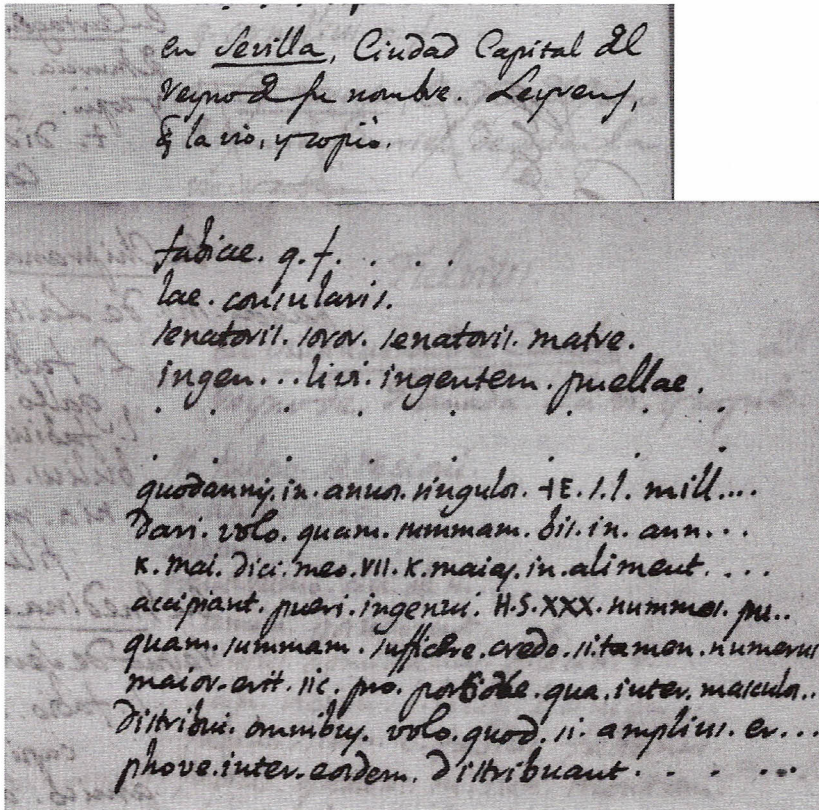 en Sevilla, Ciudad Capital del
Reyno de su nombre. Leyrens,
q̃ la vio, y copiò.
fabiae. q. f. . . .
lae. consularis.
senatoris. soror. senatoris. matre.
ingen...livi. ingentem. puellae.
. . . . . . .
. . . . . . .
quodannis. in. annos. singulos. +E. s. l. mill....
dari. volo. quam. summam. bis. in. ann...
K. mai. dici. meo. VII. K. maias. in. aliment....
accipiant. pueri. ingenui. H.S. XXX. nummos. pu..
quam. summam. sufficere. credo. si. tamen. numerus
maior. erit. sic. pro. portione. qua. inter. masculos..
distribui. omnibus. volo. quod. si. amplius. er...
phove. inter. eosdem. distribuant. . . ...